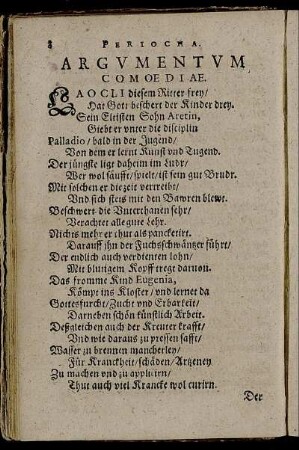 8 PERIOCHA.
ARGVMENTVM
COMOEDIAE.
LAOCLI diesem Ritter frey/
Hat Gott beschert der Kinder drey.
Sein Eleisten Sohn Aretin,
Giebt er vnter die disciplin
Palladio/ bald in der Jugend/
Von dem er lernt Kunst vnd Tugend.
Der jüngste ligt daheim im Ludr/
Wer wol säufft/ spielt/ ist sein gut Brudr.
Mit solchen er die zeit verreibt/
Vnd sich stets mit den Bawren
Beschwert die Vnterthanen sehr/
Verachtet alle gute Lehr.
Nichts mehr er thut als panckertirt.
Darauff jhn der Fuchsschwäntzer führt/
Der endlich auch verdienten lohn/
Mit blutigem Kopff tregt daruon.
Das fromme Kind Eugenia,
Kömpt ins Kloster/ vnd lernet da
Gottesfurcht/ Zucht vnd Erbarkeit/
Darneben schön künstlich Arbeit.
Deßgleichen auch der Kreuter krafft/
Vnd wie daraus zu pressen safft/
Wasser zu brennen mancherley/
Für Kranckheit/ schäden/ Artzeney
Zu machen vnd zu applicirn/
Thut auch viel Krancke wol curirn.
Der